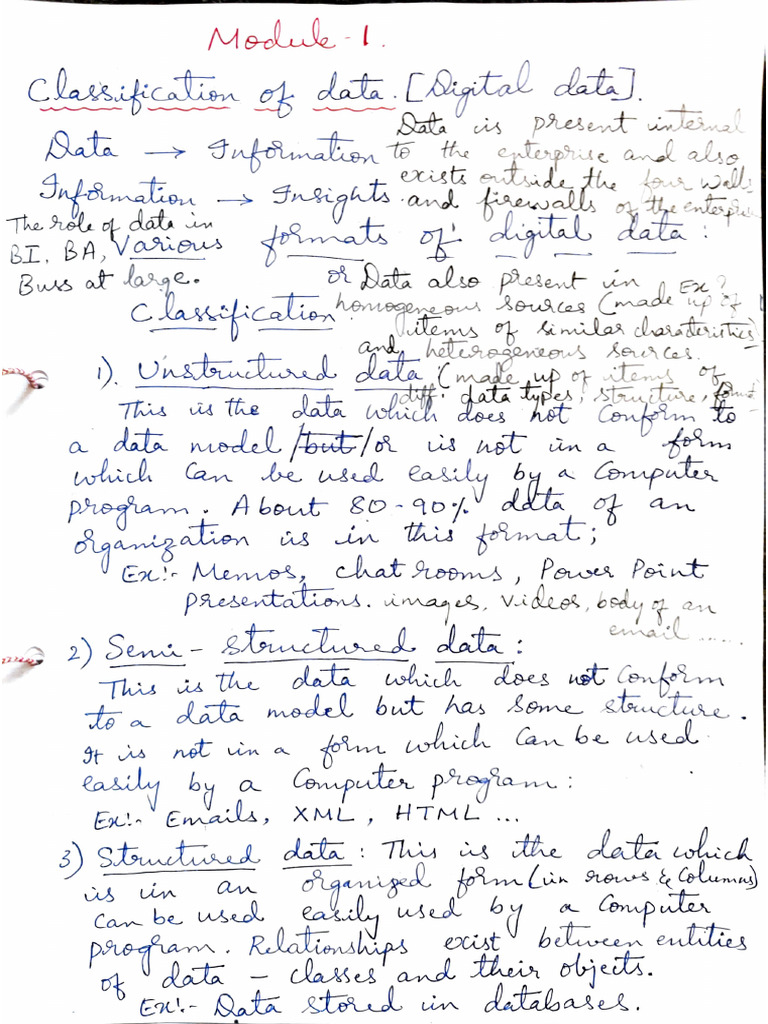 Module-1.
Classification of data. [Digital data].
Data → Information
Information → Insights.
Data is present internal
to the enterprise and also
exists outside the four walls
and firewalls of the enterprise
The role of data in
BI, BA,
Buss at large.
Various formats of digital data:
or
Classification
Data also present in Ex?
homogeneous sources (made up of
items of similar characteristics)
and heterogeneous sources.
(made up of items of
diff. data types, structure, format
1). Unstructured data
This is the data which does not conform to
a data model /but/or is not in a form
which can be used easily by a Computer
program. About 80-90% data of an
organization is in this format;
Ex:- Memos, chat rooms, Power Point
presentations. images, videos, body of an
email ......
2) Semi-structured data:
This is the data which does not conform
to a data model but has some structure.
It is not in a form which can be used
easily by a Computer program:
Ex:- Emails, XML, HTML ...
3) Structured data: This is the data which
is in an organized form (in rows & columns)
can be used easily used by a Computer
program. Relationships exist between entities
of data - classes and their objects.
Ex:- Data stored in databases.